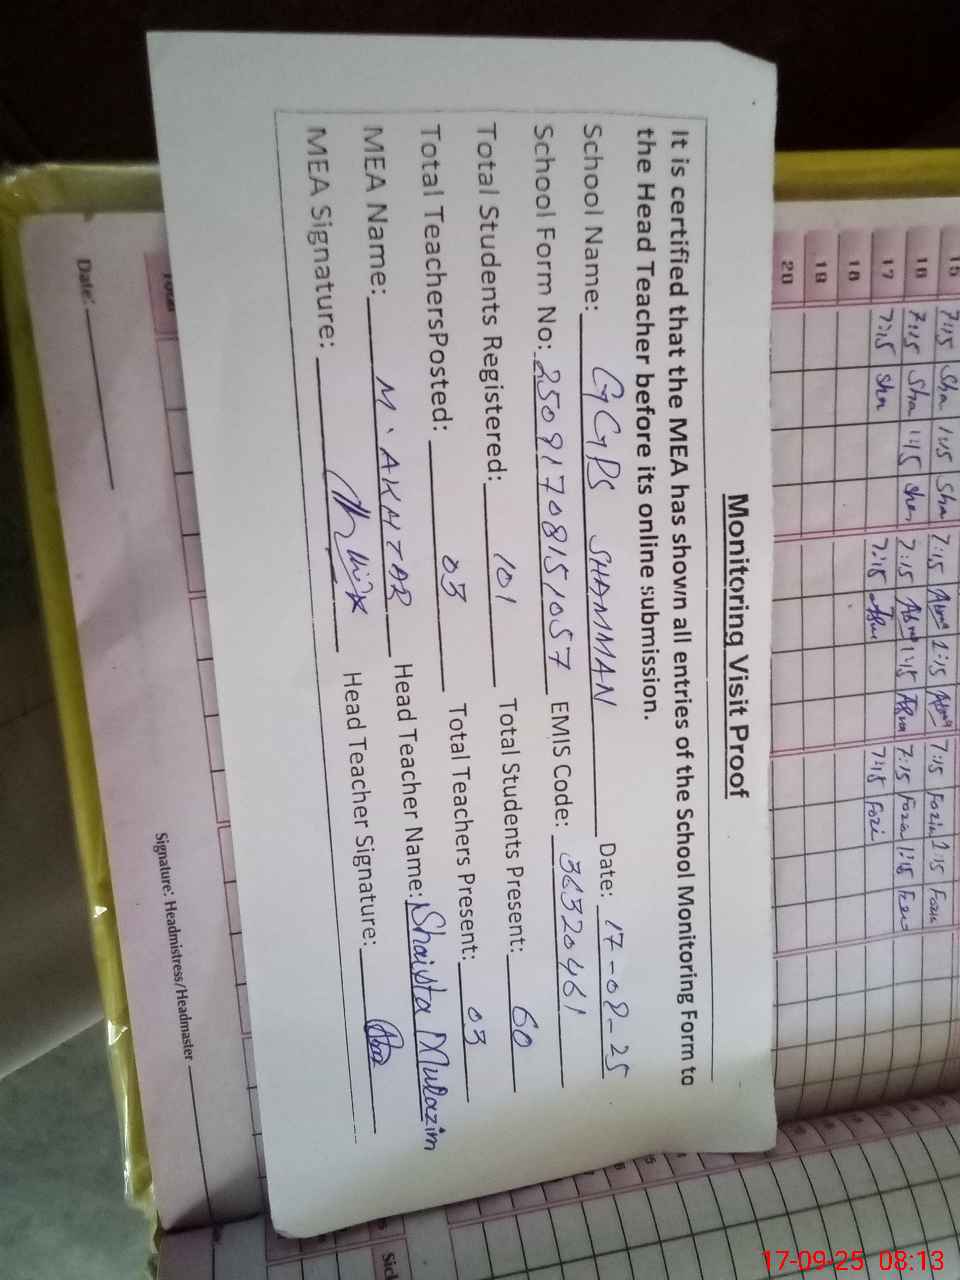 Monitoring Visit Proof
It is certified that the MEA has shown all entries of the School Monitoring Form to
the Head Teacher before its online submission.
School Name: GGPS SHAMMAN Date: 17-09-25
School Form No: 25091708151057 EMIS Code: 36320461
Total Students Registered: 101 Total Students Present: 60
Total TeachersPosted: 03 Total Teachers Present: 03
MEA Name: M. AKHTAR Head Teacher Name: Shaista Mulazim
MEA Signature: Head Teacher Signature:
15 7:15 Sha 1:15 Sha 7:15 1:15 7:15 Fozia 1:15 Fozia
16 7:15 Sha 1:15 Sha 7:15 1:15 7:15 Fozia 1:15
17 7:15 Sha 7:15 7:15 Fozi
18
19
20
Total
Date:
Signature: Headmistress/Headmaster
17-09-25 08:13